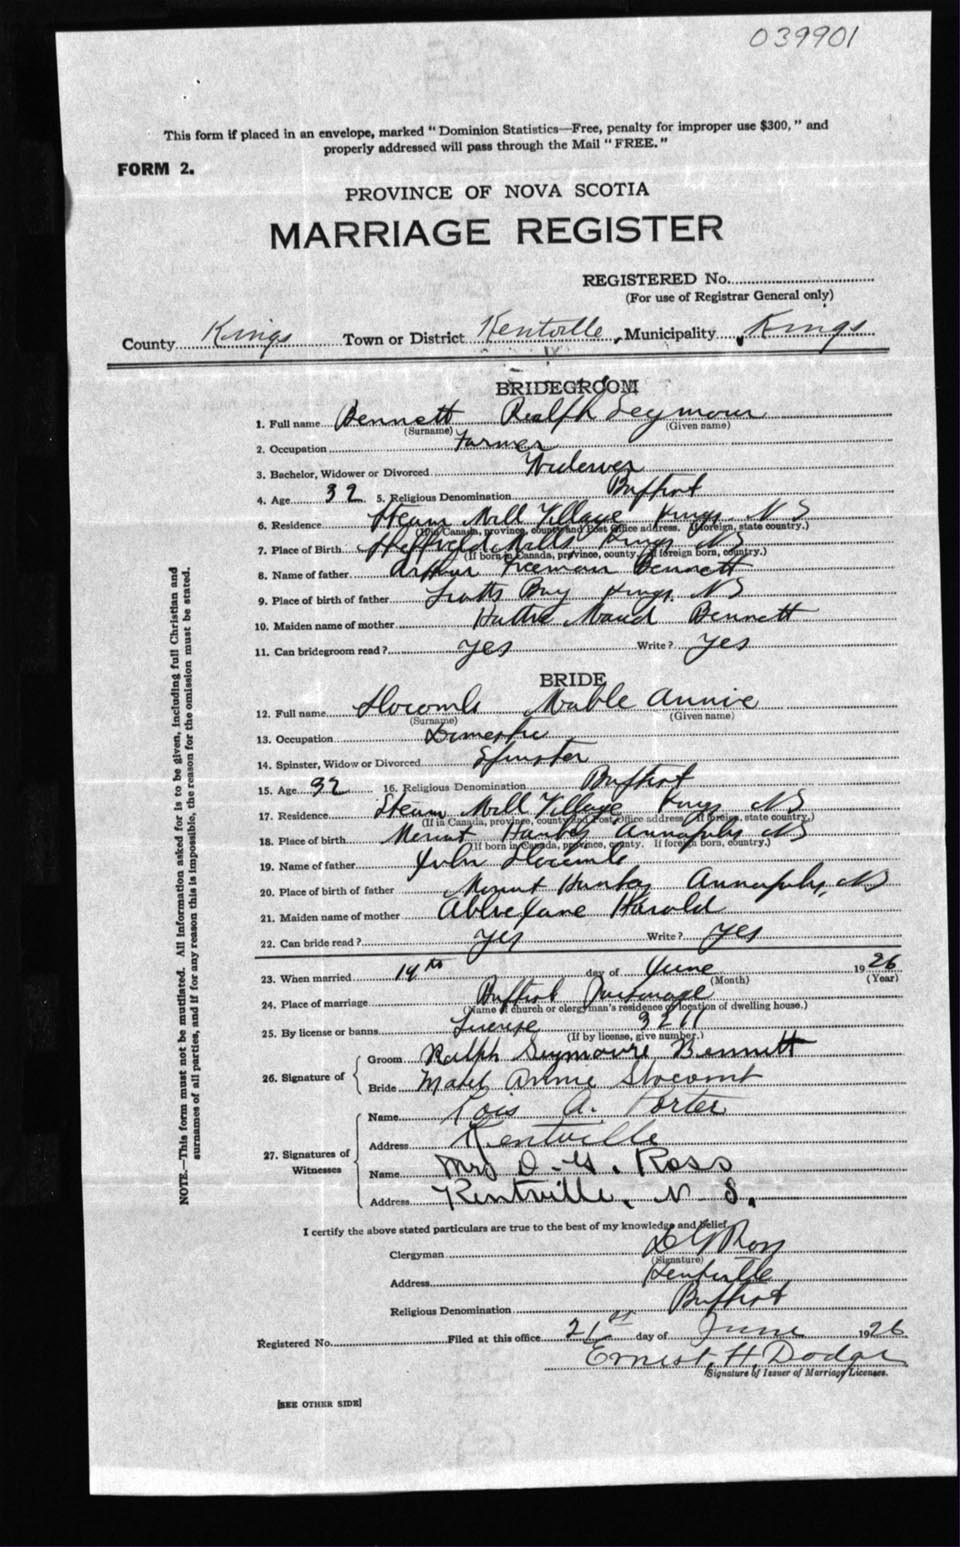 039901
This form if placed in an envelope, marked "Dominion Statistics—Free, penalty for improper use $300," and
properly addressed will pass through the Mail "FREE."
FORM 2.
PROVINCE OF NOVA SCOTIA
MARRIAGE REGISTER
REGISTERED No.
(For use of Registrar General only)
County Kings Town or District Kentville, Municipality Kings
BRIDEGROOM
1. Full name Bennett Ralph Seymour
(Surname) (Given name)
2. Occupation Farmer
3. Bachelor, Widower or Divorced Widower
4. Age 32 5. Religious Denomination Baptist
6. Residence Steam Mill Village Kings NS
(If in Canada, province, county and Post Office address. If foreign, state country.)
7. Place of Birth Sheffield Mills Kings NS
(If born in Canada, province, county. If foreign born, country.)
8. Name of father Arthur Freeman Bennett
9. Place of birth of father Scotts Bay Kings, NS
10. Maiden name of mother Maud Bennett
11. Can bridegroom read? yes Write? yes
BRIDE
12. Full name Slocomb Mable Annie
(Surname) (Given name)
13. Occupation Domestic
14. Spinster, Widow or Divorced Spinster
15. Age 32 16. Religious Denomination Baptist
17. Residence Steam Mill Village Kings NS
(If in Canada, province, county and Post Office address. If foreign, state country.)
18. Place of birth Mount Hanley Annapolis NS
(If born in Canada, province, county. If foreign born, country.)
19. Name of father John Slocomb
20. Place of birth of father Mount Hanley Annapolis, NS
21. Maiden name of mother Jane Harold
22. Can bride read? yes Write? yes
23. When married 14th day of June 1926
(Month) (Year)
24. Place of marriage Baptist Parsonage
(Name of church or clergyman's residence or location of dwelling house.)
25. By license or banns License 3211
(If by license, give number.)
26. Signature of Groom Ralph Seymoure Bennett
Bride Mabel Annie Slocomb
27. Signatures of Witnesses
Name Lois A. Porter
Address Kentville
Name Mrs D. G. Ross
Address Kentville, N. S.
I certify the above stated particulars are true to the best of my knowledge and belief.
Clergyman D G Ross
(Signature)
Address Kentville
Religious Denomination Baptist
Registered No. Filed at this office 21st day of June 1926
Ernest H. Dodge
Signature of Issuer of Marriage Licenses.
[SEE OTHER SIDE]
NOTE.—This form must not be mutilated. All information asked for is to be given, including full Christian and
surnames of all parties, and if for any reason this is impossible, the reason for the omission must be stated.